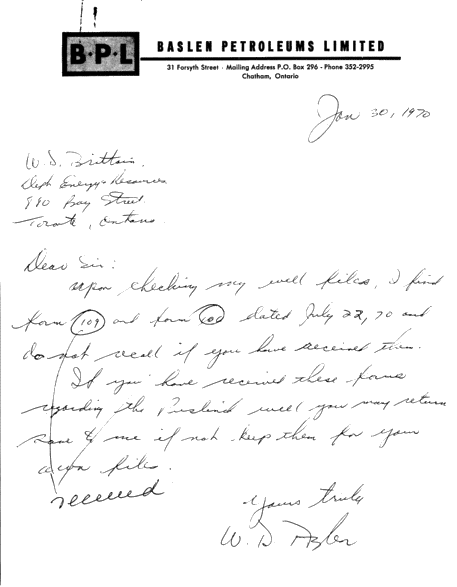 B·P·L
BASLEN PETROLEUMS LIMITED
31 Forsyth Street · Mailing Address P.O. Box 296 - Phone 352-2995
Chatham, Ontario
Jan 30, 1970
W. D. Brittain.
Dept Energy & Resources
880 Bay Street.
Toronto, Ontario
Dear Sir:
Upon checking my well files, I find
form 109 and form dated July 22, 70 and
do not recall if you have received them.
If you have received these forms
regarding the Puslinch well you may return
same to me if not keep them for your
own files.
received
Yours truly
W. D.